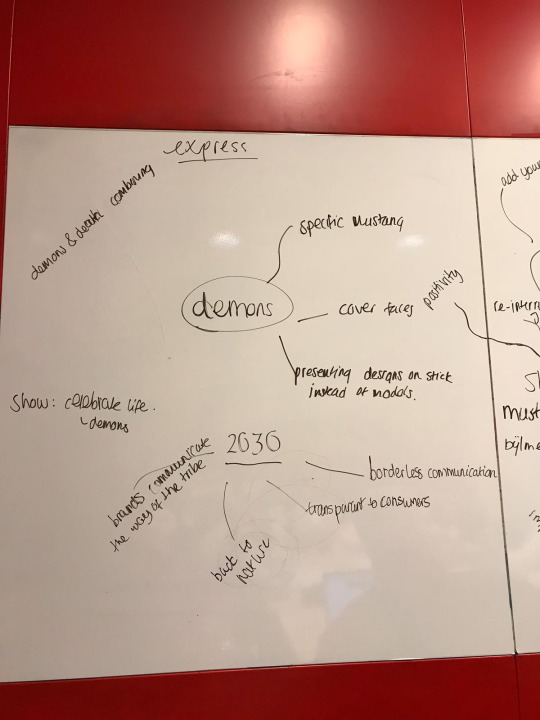 express
demons & death combining
specific mustang
demons
cover faces
positivity
presenting designs on stick
instead of models.
Show: celebrate life.
demons
2030
brands communicate
the way of the tribe
borderless communication
transparant to consumers
back to
nature
add your
must
bijlme